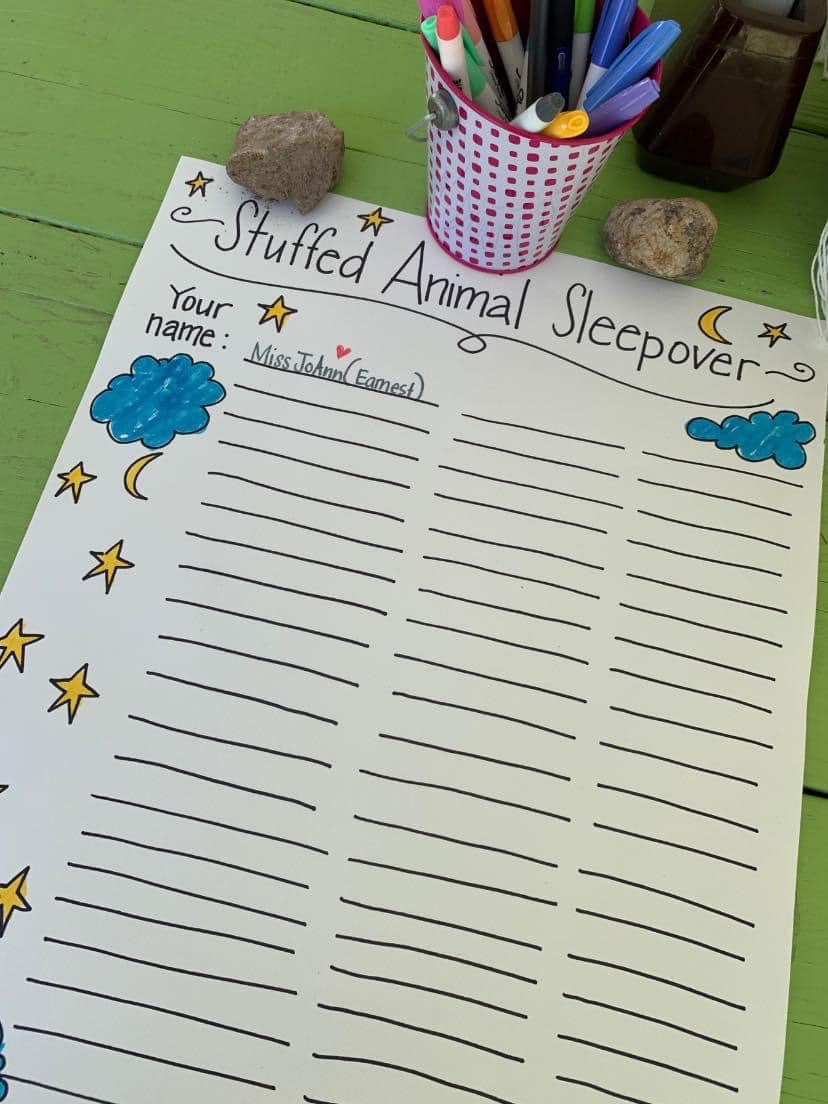 Stuffed Animal Sleepover
Your
name:
Miss JoAnn (Earnest)